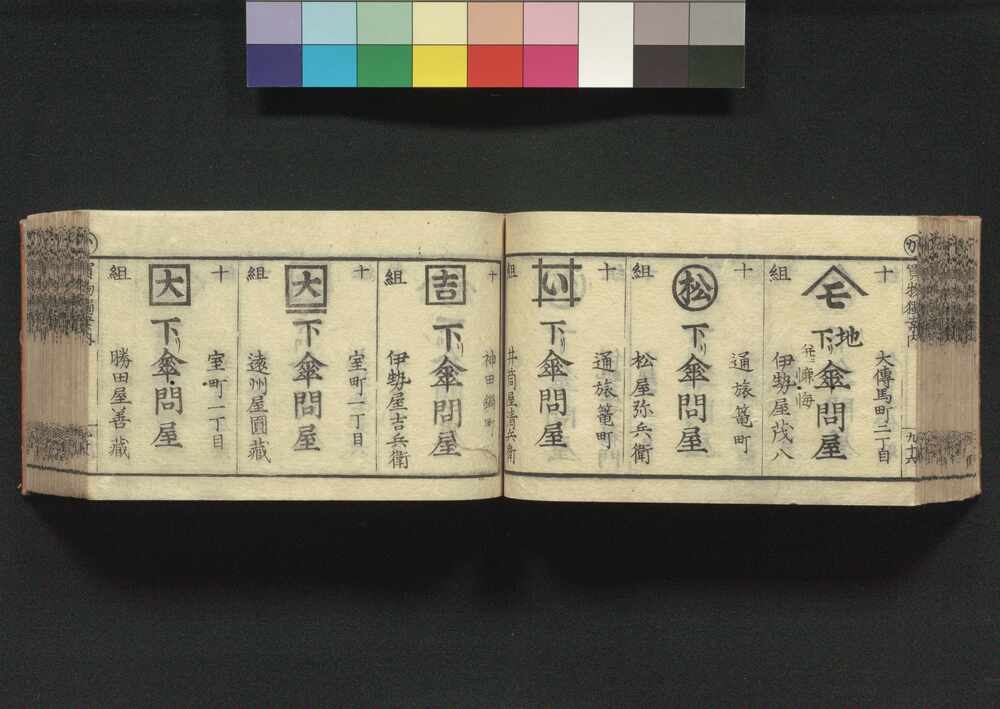 十
組
大傳馬町二丁目
モ
地
下り
傘問屋
伊勢屋茂八
十
組
通旅篭町
松
下り
傘問屋
松屋弥兵衛
十
組
通旅篭町
い
下り
傘問屋
井筒屋清兵衛
十
組
神田鍋町
吉
下り
傘問屋
伊勢屋吉兵衛
十
組
室町二丁目
大
下り
傘問屋
遠州屋圓藏
十
組
室町一丁目
大
下り
傘問屋
勝田屋善藏